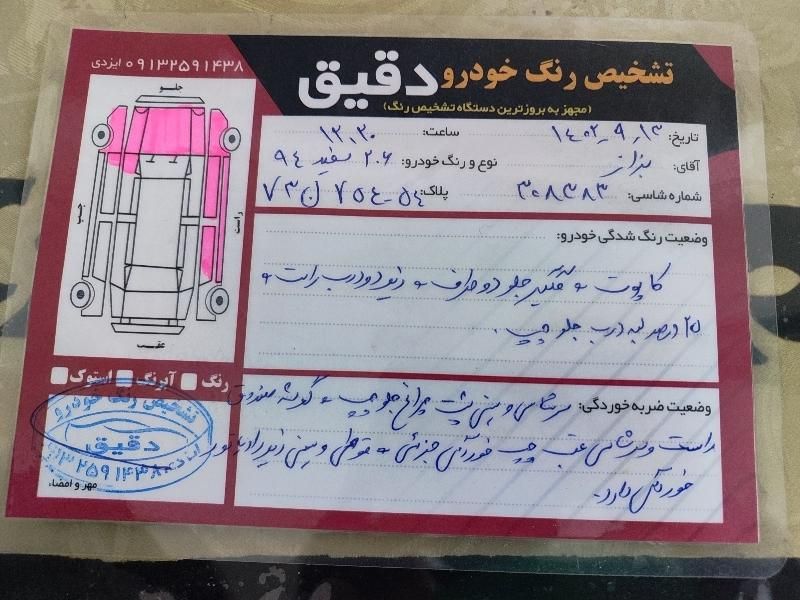 تشخیص رنگ خودرو دقیق
(مجهز به بروزترین دستگاه تشخیص رنگ)
۰۹۱۳۲۵۹۱۴۳۸ ایزدی
تاریخ: ۱۴۰۲_۹_۱۳ ساعت: ۱۲،۳۰
آقای: نوع و رنگ خودرو: ۲۰۶ سفید ۹۴
شماره شاسی: ۳۰۸۳۸۳ پلاک: ۵۴-۷۵۴ ل ۷۳
جلـو
چپ
راست
عقـب
وضعیت رنگ شدگی خودرو:
کاپوت و گلگیر جلو دو طرف و زیر دو درب راست و
۲۵ درصد لبه درب جلو چپ.
رنگ آبرنگ استوک
وضعیت ضربه خوردگی: سرشاسی و سینی پشت چراغ جلو چپ و گوشه صندوق
راست و سرشاسی عقب چپ خوردگی جزئی و قوطی و سینی زیر رادیاتور
خوردگی دارد.
تشخیص رنگ خودرو
دقیق
۰۹۱۳۲۵۹۱۴۳۸
مهر و امضاء: